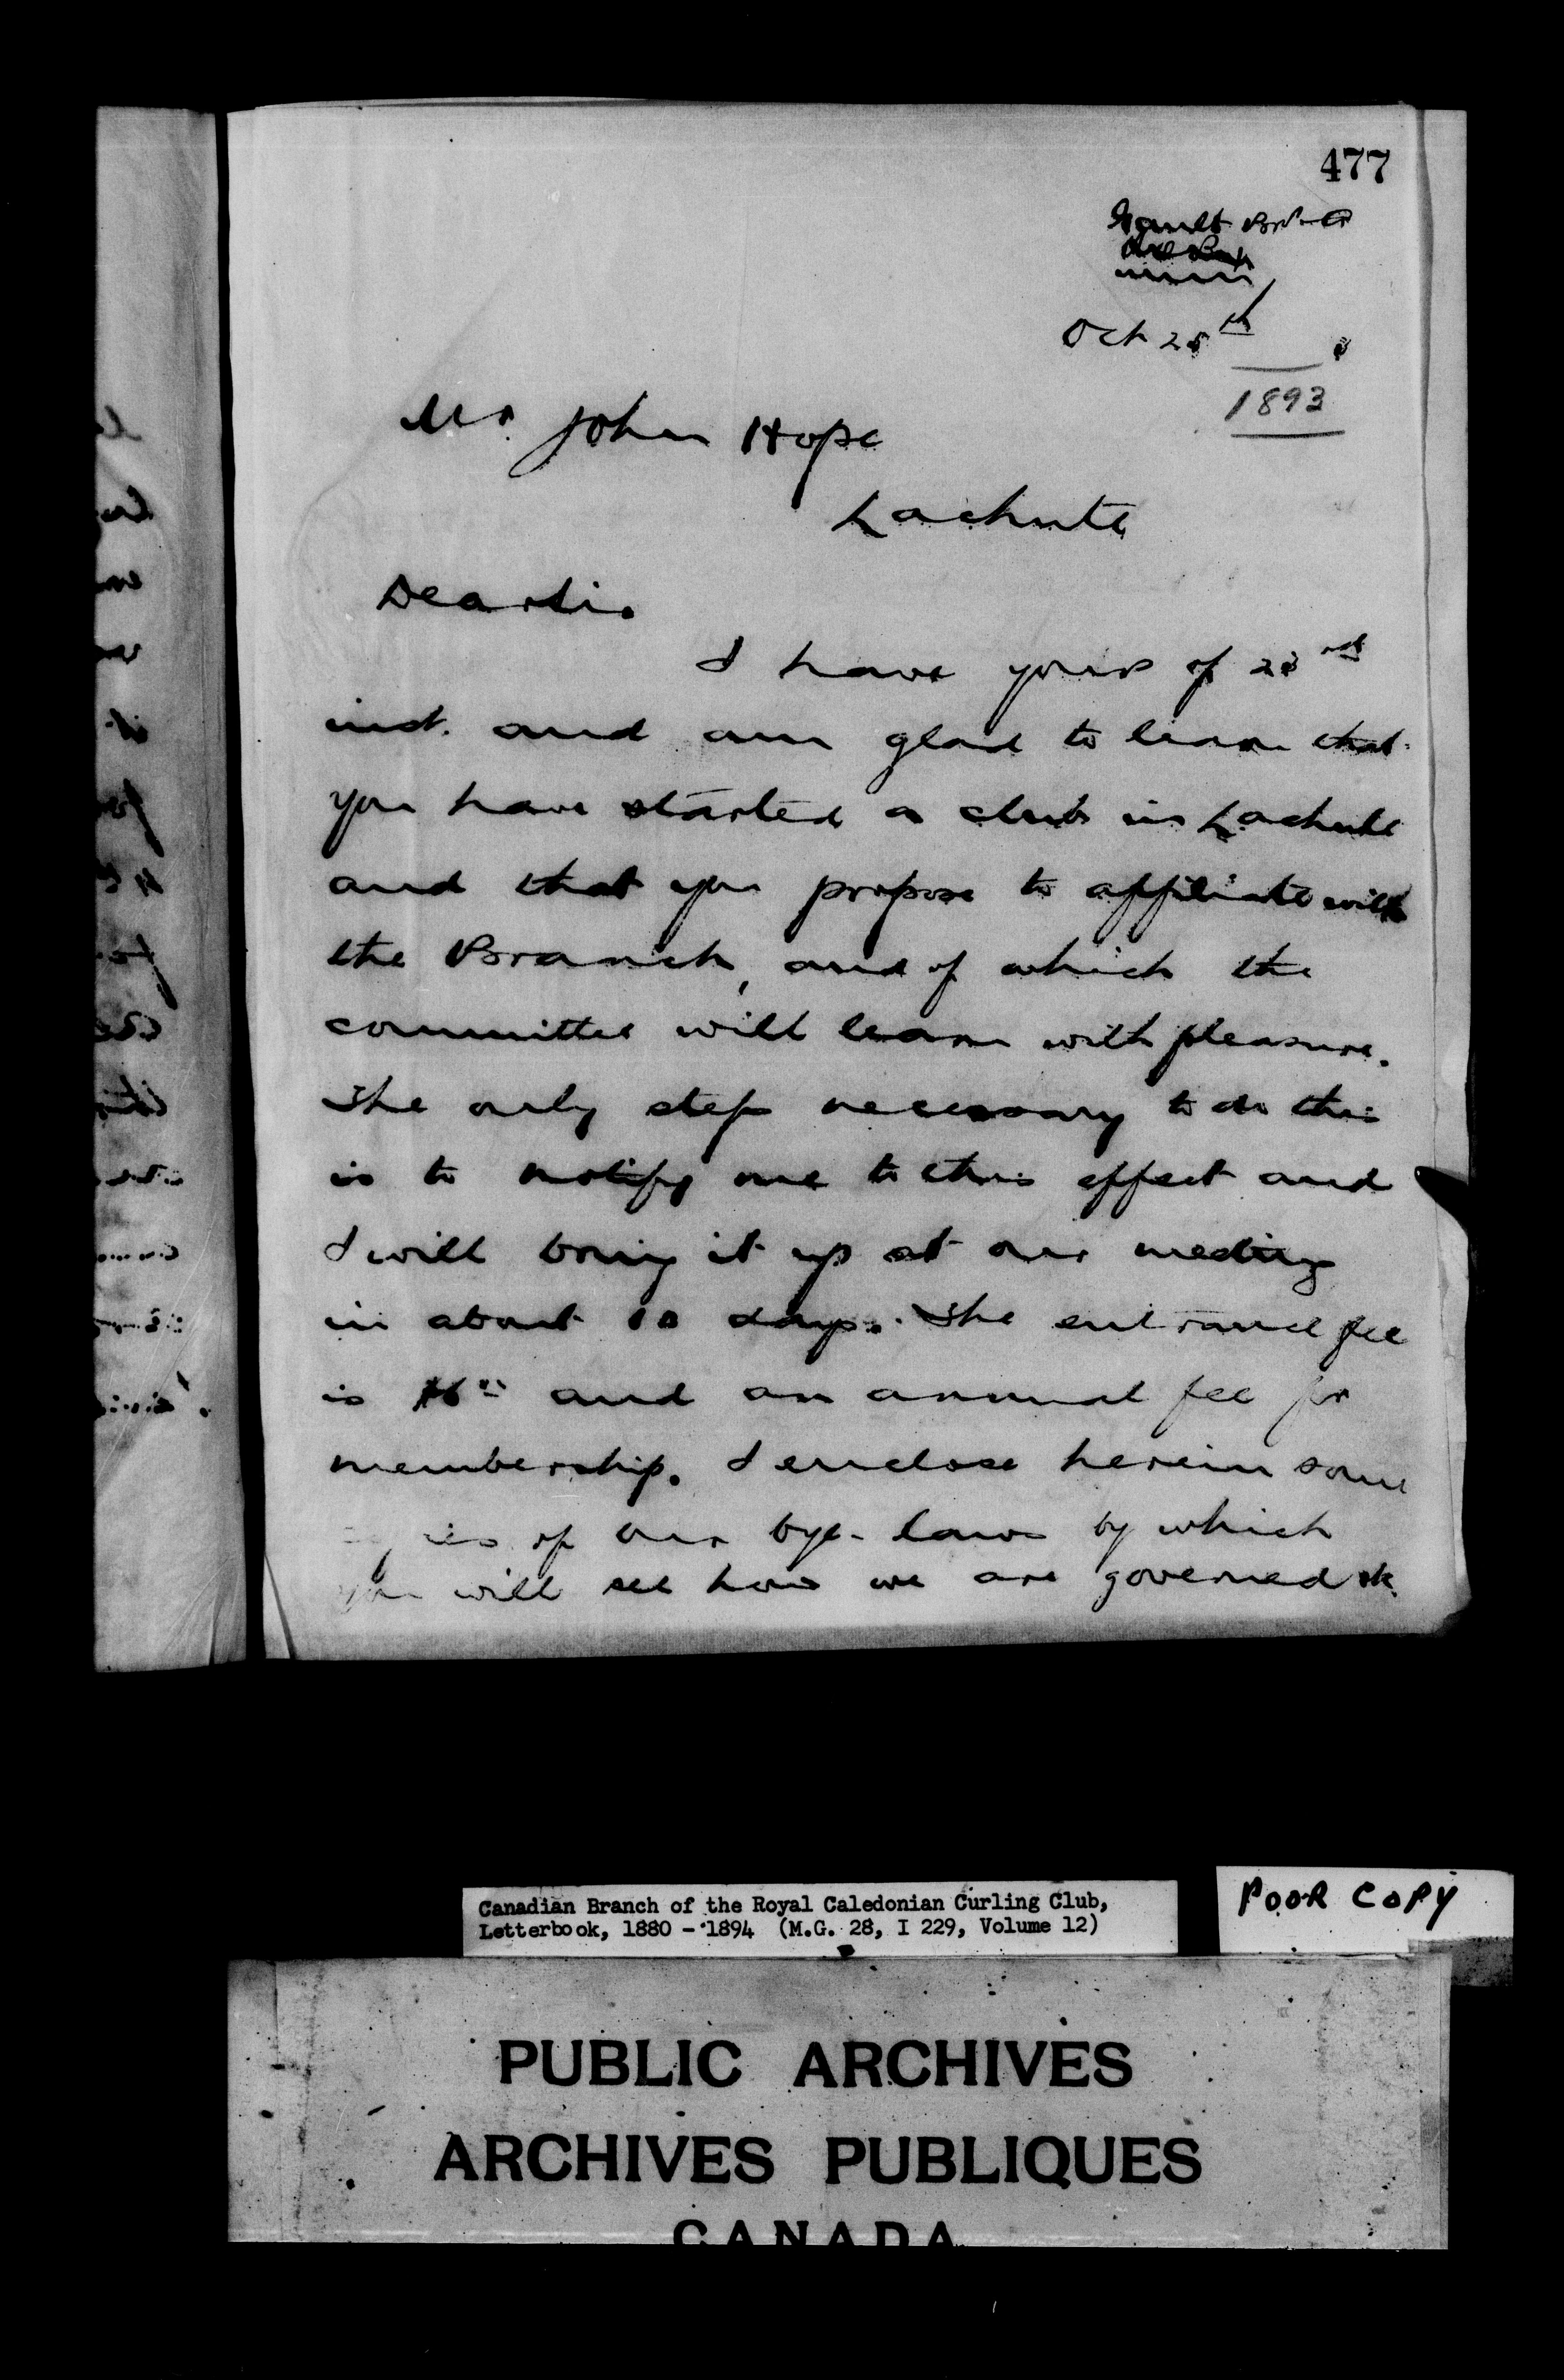 477
Oct 25th
1893
Mr. John Hope
Lachute
Dear Sir
I have yours of 23rd
inst. and am glad to learn that
you have started a club in Lachute
and that you propose to affiliate with
the Branch, and of which the
committee will learn with pleasure.
The only step necessary to do this
is to notify me to this effect and
I will bring it up at our meeting
in about 10 days. The entrance fee
is and an annual fee for
membership. I enclose herein some
of our bye-laws by which
you will see how we are governed etc.
Canadian Branch of the Royal Caledonian Curling Club,
Letterbook, 1880 - 1894 (M.G. 28, I 229, Volume 12)
POOR COPY
PUBLIC ARCHIVES
ARCHIVES PUBLIQUES
CANADA